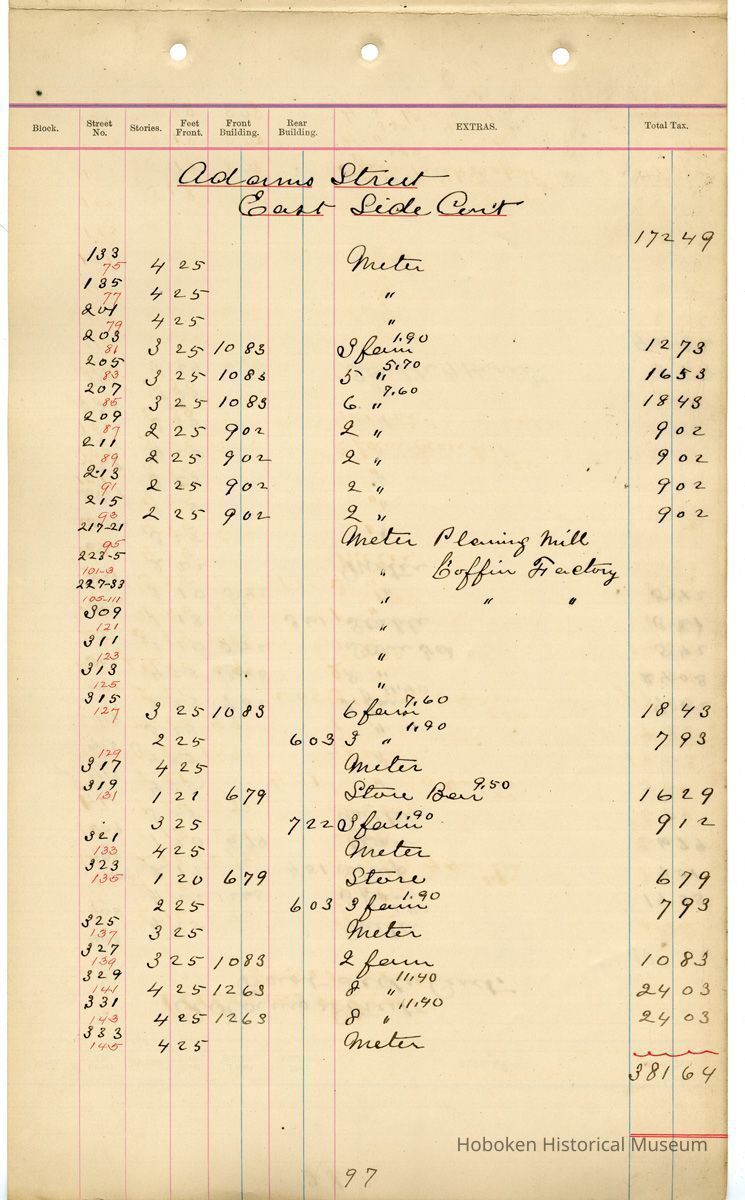 Block. Street No. Stories. Feet Front. Front Building. Rear Building. EXTRAS. Total Tax.
Adams Street
East Side Con't
172 49
133
75 4 25 Meter
135
77 4 25 "
201
79 4 25 "
203
81 3 25 10 83 3 fam 1.90 12 73
205
83 3 25 10 83 5 " 5.70 16 53
207
85 3 25 10 83 6 " 7.60 18 43
209
87 2 25 9 02 2 " 9 02
211
89 2 25 9 02 2 " 9 02
213
91 2 25 9 02 2 " 9 02
215
93 2 25 9 02 2 " 9 02
217-21
95 Meter Planing Mill
223-5
101-3 " Coffin Factory
227-33
105-111 " " "
309
121 "
311
123 "
313
125 "
315
127 3 25 10 83 6 fam 7.60 18 43
2 25 6 03 3 " 1.90 7 93
129
317 4 25 Meter
319
131 1 21 6 79 Store Bar 9.50 16 29
3 25 7 22 3 fam 1.90 9 12
321
133 4 25 Meter
323
135 1 20 6 79 Store 6 79
2 25 6 03 3 fam 1.90 7 93
325
137 3 25 Meter
327
139 3 25 10 83 2 fam 10 83
329
141 4 25 12 63 8 " 11.40 24 03
331
143 4 25 12 63 8 " 11.40 24 03
333
145 4 25 Meter
381 64
Hoboken Historical Museum
97